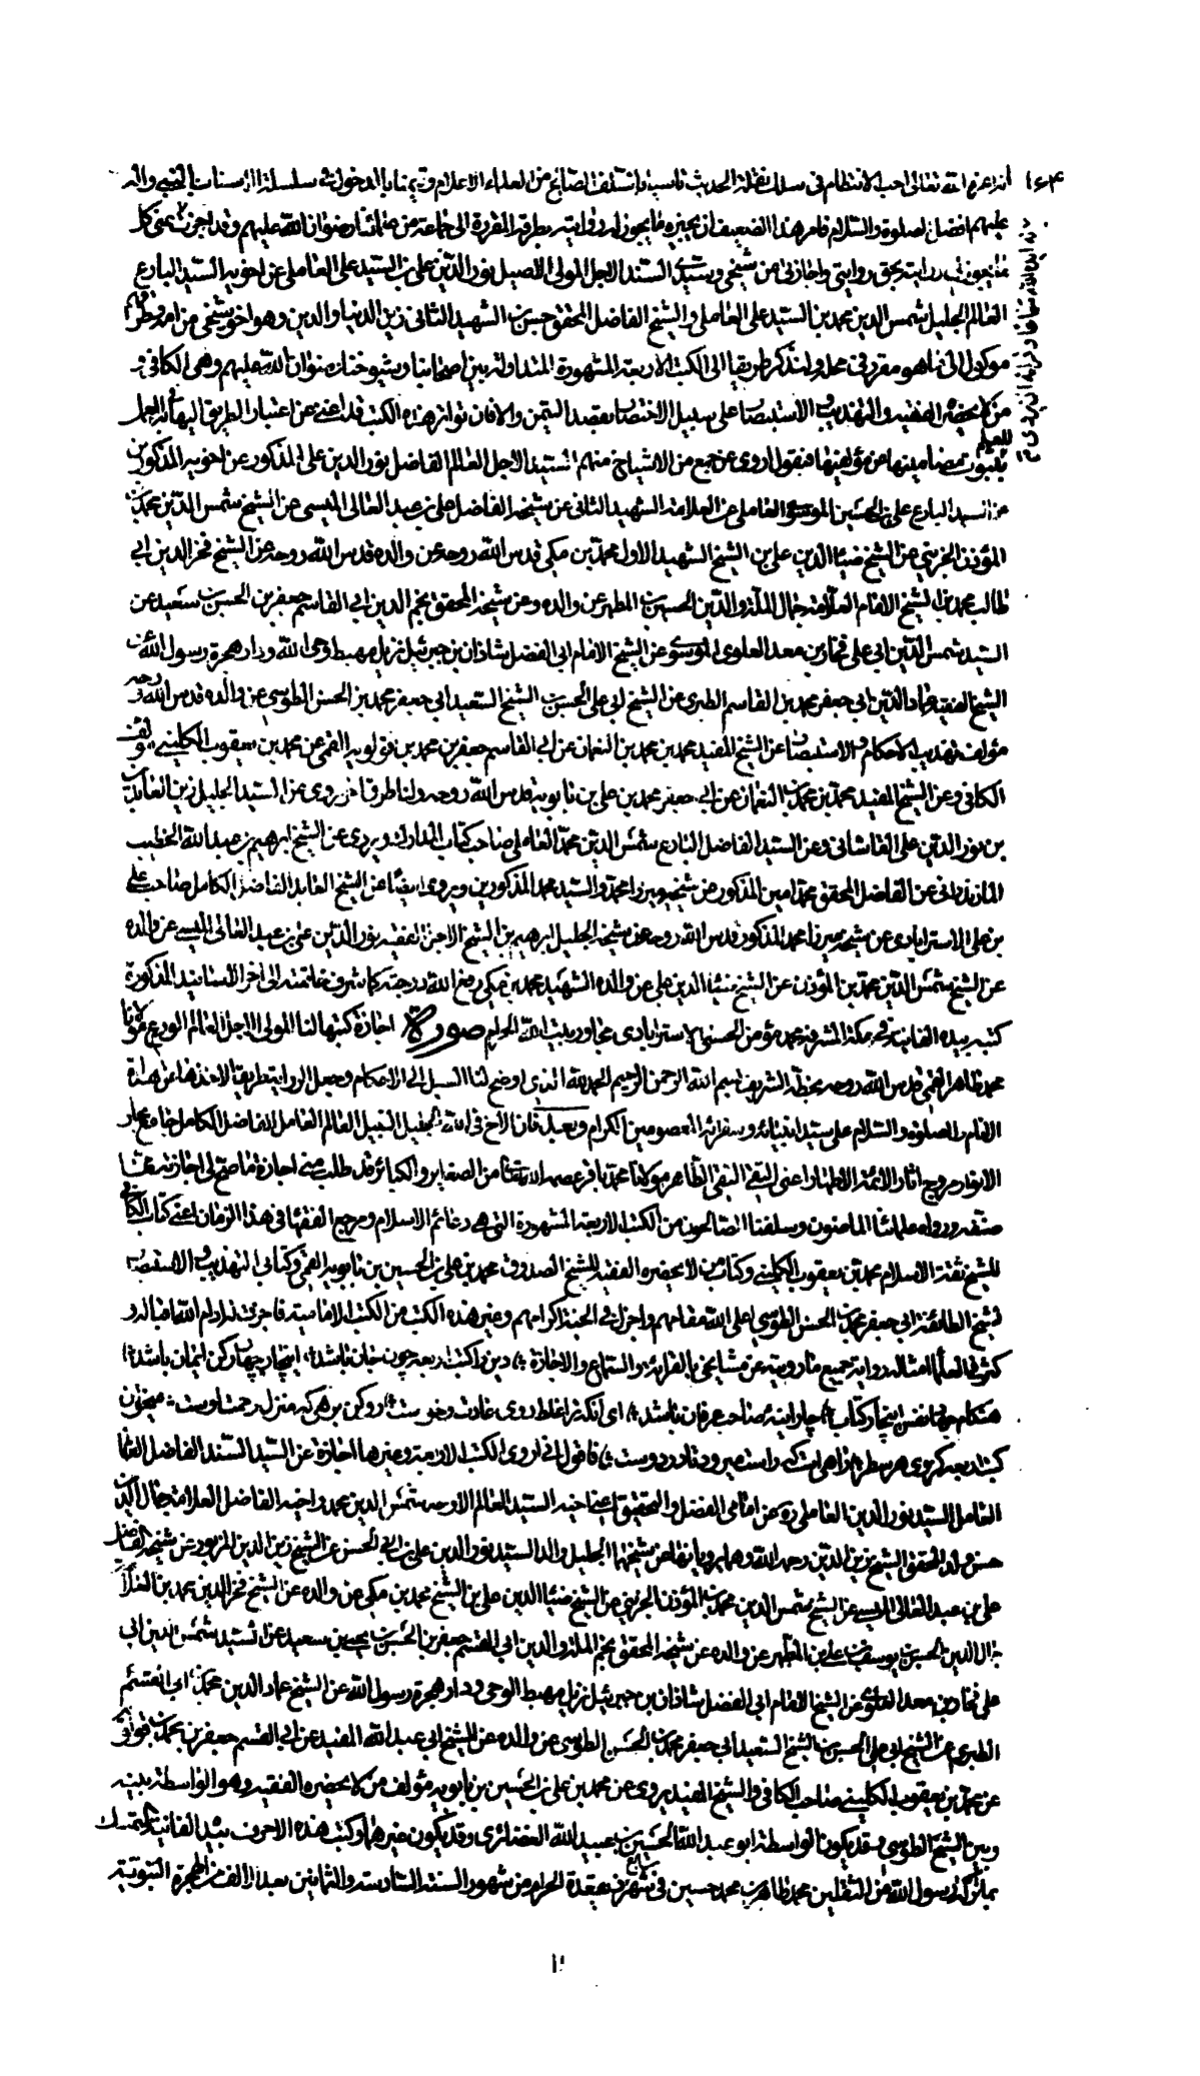 ١٦٤
انه اعزه الله تعالى احب الانتظام في سلك نقلة الحديث تأسيا بالسلف الصالح من العلماء الاعلام وتيمنا بالدخول في سلسلة الاسناد بالنبي وآله
عليهم افضل الصلوة والسلام فامر هذا الضعيف ان يجيزه ما يجوز له روايته بطرقه المقررة الى جماعة من علمائنا رضوان الله عليهم وقد اجزت له في كل
ما يجوز لي روايته بحق روايتي واجازتي من شيخي وسيدي السند الاجل المولى الاصيل نور الدين علي بن السيد علي العاملي عن اخويه السيد البارع
العالم الجليل شمس الدين محمد بن السيد علي العاملي والشيخ الفاضل المحقق حسن بن الشهيد الثاني زين الدنيا والدين وهو اخو شيخي من امه
موكول الى ما هو مقرر في محله ولنذكر طريقا الى الكتب الاربعة المشهورة المتداولة بين اصحابنا وشيوخنا رضوان الله عليهم وهي الكافي و
من لا يحضره الفقيه والتهذيب والاستبصار على سبيل الاختصار بقصد التيمن والا فان تواتر هذه الكتب قد اغنى عن اعتبار الطريق اليها
بثبوت مضامينها عن مؤلفيها فنقول اروي عن جمع من الاشياخ منهم السيد الاجل العالم الفاضل نور الدين علي المذكور عن اخويه المذكورين
عن السيد البارع علي بن الحسين الموسوي العاملي عن العلامة الشهيد الثاني عن شيخه الفاضل علي بن عبد العالي الميسي عن الشيخ شمس الدين محمد بن
المؤذن الجزيني عن الشيخ ضياء الدين علي بن الشيخ الشهيد الاول محمد بن مكي قدس الله روحه عن والده قدس الله روحه عن الشيخ فخر الدين ابي
طالب محمد بن الشيخ الامام العلامة جمال الملة والدين الحسن بن المطهر عن والده وعن شيخه المحقق نجم الدين ابي القاسم جعفر بن الحسن بن سعيد عن
السيد شمس الدين ابي علي فخار بن معد العلوي الموسوي عن الشيخ الامام ابي الفضل شاذان بن جبرئيل نزيل مهبط وحي الله ودار هجرة رسول الله عن
الشيخ الفقيه عماد الدين ابي جعفر محمد بن القاسم الطبري عن الشيخ ابي علي الحسن بن الشيخ السعيد ابي جعفر محمد بن الحسن الطوسي عن والده قدس الله روحه
مؤلف تهذيب الاحكام والاستبصار عن الشيخ المفيد محمد بن محمد بن النعمان عن ابي القاسم جعفر بن محمد بن قولويه القمي عن محمد بن يعقوب الكليني مؤلف
الكافي وعن الشيخ المفيد محمد بن محمد بن النعمان عن ابي جعفر محمد بن علي بن بابويه قدس الله روحه ولنا طرق اخر نروي عن السيد الجليل زين العابدين
بن نور الدين علي القاشاني وعن السيد الفاضل البارع شمس الدين محمد العاملي صاحب كتاب المدارك ونروي عن الشيخ ابرهيم بن عبد الله الخطيب
المازندراني عن الفاضل المحقق محمد امين المذكور عن شيخيه ميرزا محمد والسيد محمد المذكورين ونروي ايضا عن الشيخ العابد الفاضل الكامل صاحب علي
بن علي الاسترابادي عن شيخه ميرزا محمد المذكور قدس الله روحه عن شيخه الجليل ابرهيم بن الشيخ الاجل الفقيه نور الدين علي بن عبد العالي الميسي عن والده
عن الشيخ شمس الدين محمد بن المؤذن عن الشيخ ضياء الدين علي عن والده الشهيد محمد بن مكي رفع الله درجته كما شرف خاتمته الى اخر الاسانيد المذكورة
كتبه بيده الفانية في مكة المشرفة محمد مؤمن الحسيني الاسترابادي مجاور بيت الله الحرام صورة اجازة كتبها لنا المولى الاجل العالم الورع مولانا
محمد طاهر القمي قدس الله روحه بخطه الشريف بسم الله الرحمن الرحيم الحمد لله الذي اوضح لنا السبيل الى الاحكام وجعل الرواية طريقا لاخذها عن هداة
الانام والصلوة والسلام على سيد انبيائه وسفرائه المعصومين الكرام وبعد فان الاخ في الله الجليل النبيل العالم العامل الفاضل الكامل جامع بحار
الانوار مروج اثار الائمة الاطهار اعني التقي النقي الطاهر مولانا محمد باقر عصمه الله تعالى من الصغاير والكبائر قد طلب مني اجازة ما صح لي اجازته مما
صنفه ورواه علمائنا الماضون وسلفنا الصالحون من الكتب الاربعة المشهورة التي هي دعائم الاسلام ومرجع الفقهاء في هذا الزمان اعني كتاب الكافي
للشيخ ثقة الاسلام محمد بن يعقوب الكليني وكتاب من لا يحضره الفقيه للشيخ الصدوق محمد بن علي بن الحسين بن بابويه القمي وكتابي التهذيب والاستبصار
لشيخ الطائفة ابي جعفر محمد بن الحسن الطوسي اعلى الله مقامهم واجزل في الجنة اكرامهم وغير هذه الكتب من الكتب الامامية فاجزت له ادام الله اقباله و
كثر في العلماء امثاله رواية جميع ما رويته عن مشايخي بالقرائة والسماع والاجازة دين را كتب اربعه چون جان باشد اين چار چهار ركن ايمان باشد
هنكام جهاد نفس اين چار كتاب چار اينه صاحب عرفان باشد اي انكه ترا غلط روي عادت وخوست رو كن برهي كه منزل رحمت اوست ميخوان
كتب اربعه كز وي هر سطر راهي است كه راست ميرود تا در دوست فاقول اني اروي الكتب الاربعة وغيرها اجازة عن السيد السند الفاضل العالم
العامل السيد نور الدين العاملي ره عن امامي الفضل والتحقيق اعني اخيه السيد العالم الاوحد شمس الدين محمد واخيه الفاضل العلامة جمال الدين
حسن ولد المحقق الشيخ زين الدين رحمه الله وهما يرويانها عن شيخهما الجليل والد السيد نور الدين علي بن ابي الحسن عن الشيخ زين الدين المزبور عن شيخه الفاضل
علي بن عبد العالي الميسي عن الشيخ شمس الدين محمد بن المؤذن الجزيني عن الشيخ ضياء الدين علي بن الشيخ محمد بن مكي عن والده عن الشيخ فخر الدين محمد بن العلامة
جمال الدين الحسن بن يوسف بن علي بن المطهر عن والده عن شيخه المحقق نجم الملة والدين ابي القسم جعفر بن الحسن بن يحيى بن سعيد عن السيد شمس الدين ابي
علي فخار بن معد العلوي عن الشيخ الامام ابي الفضل شاذان بن جبرئيل نزيل مهبط الوحي ودار هجرة رسول الله عن الشيخ عماد الدين محمد بن ابي القسم
الطبري عن الشيخ ابي علي الحسن بن الشيخ السعيد ابي جعفر محمد بن الحسن الطوسي عن والده عن الشيخ ابي عبد الله المفيد عن ابي القسم جعفر بن محمد بن قولويه
عن محمد بن يعقوب الكليني صاحب الكافي والشيخ المفيد يروي عن محمد بن علي بن الحسين بن بابويه مؤلف من لا يحضره الفقيه وهو الواسطة بينه
وبين الشيخ الطوسي وقد يكون الواسطة ابو عبد الله الحسين بن عبيد الله الغضائري وقد يكون غيرهما وكتب هذه الاحرف بيده الفانية المتمسك
بما تركه رسول الله من الثقلين محمد طاهر بن محمد حسين في شهر ذي قعدة الحرام من شهور السنة السادسة والثمانين بعد الالف من الهجرة النبوية